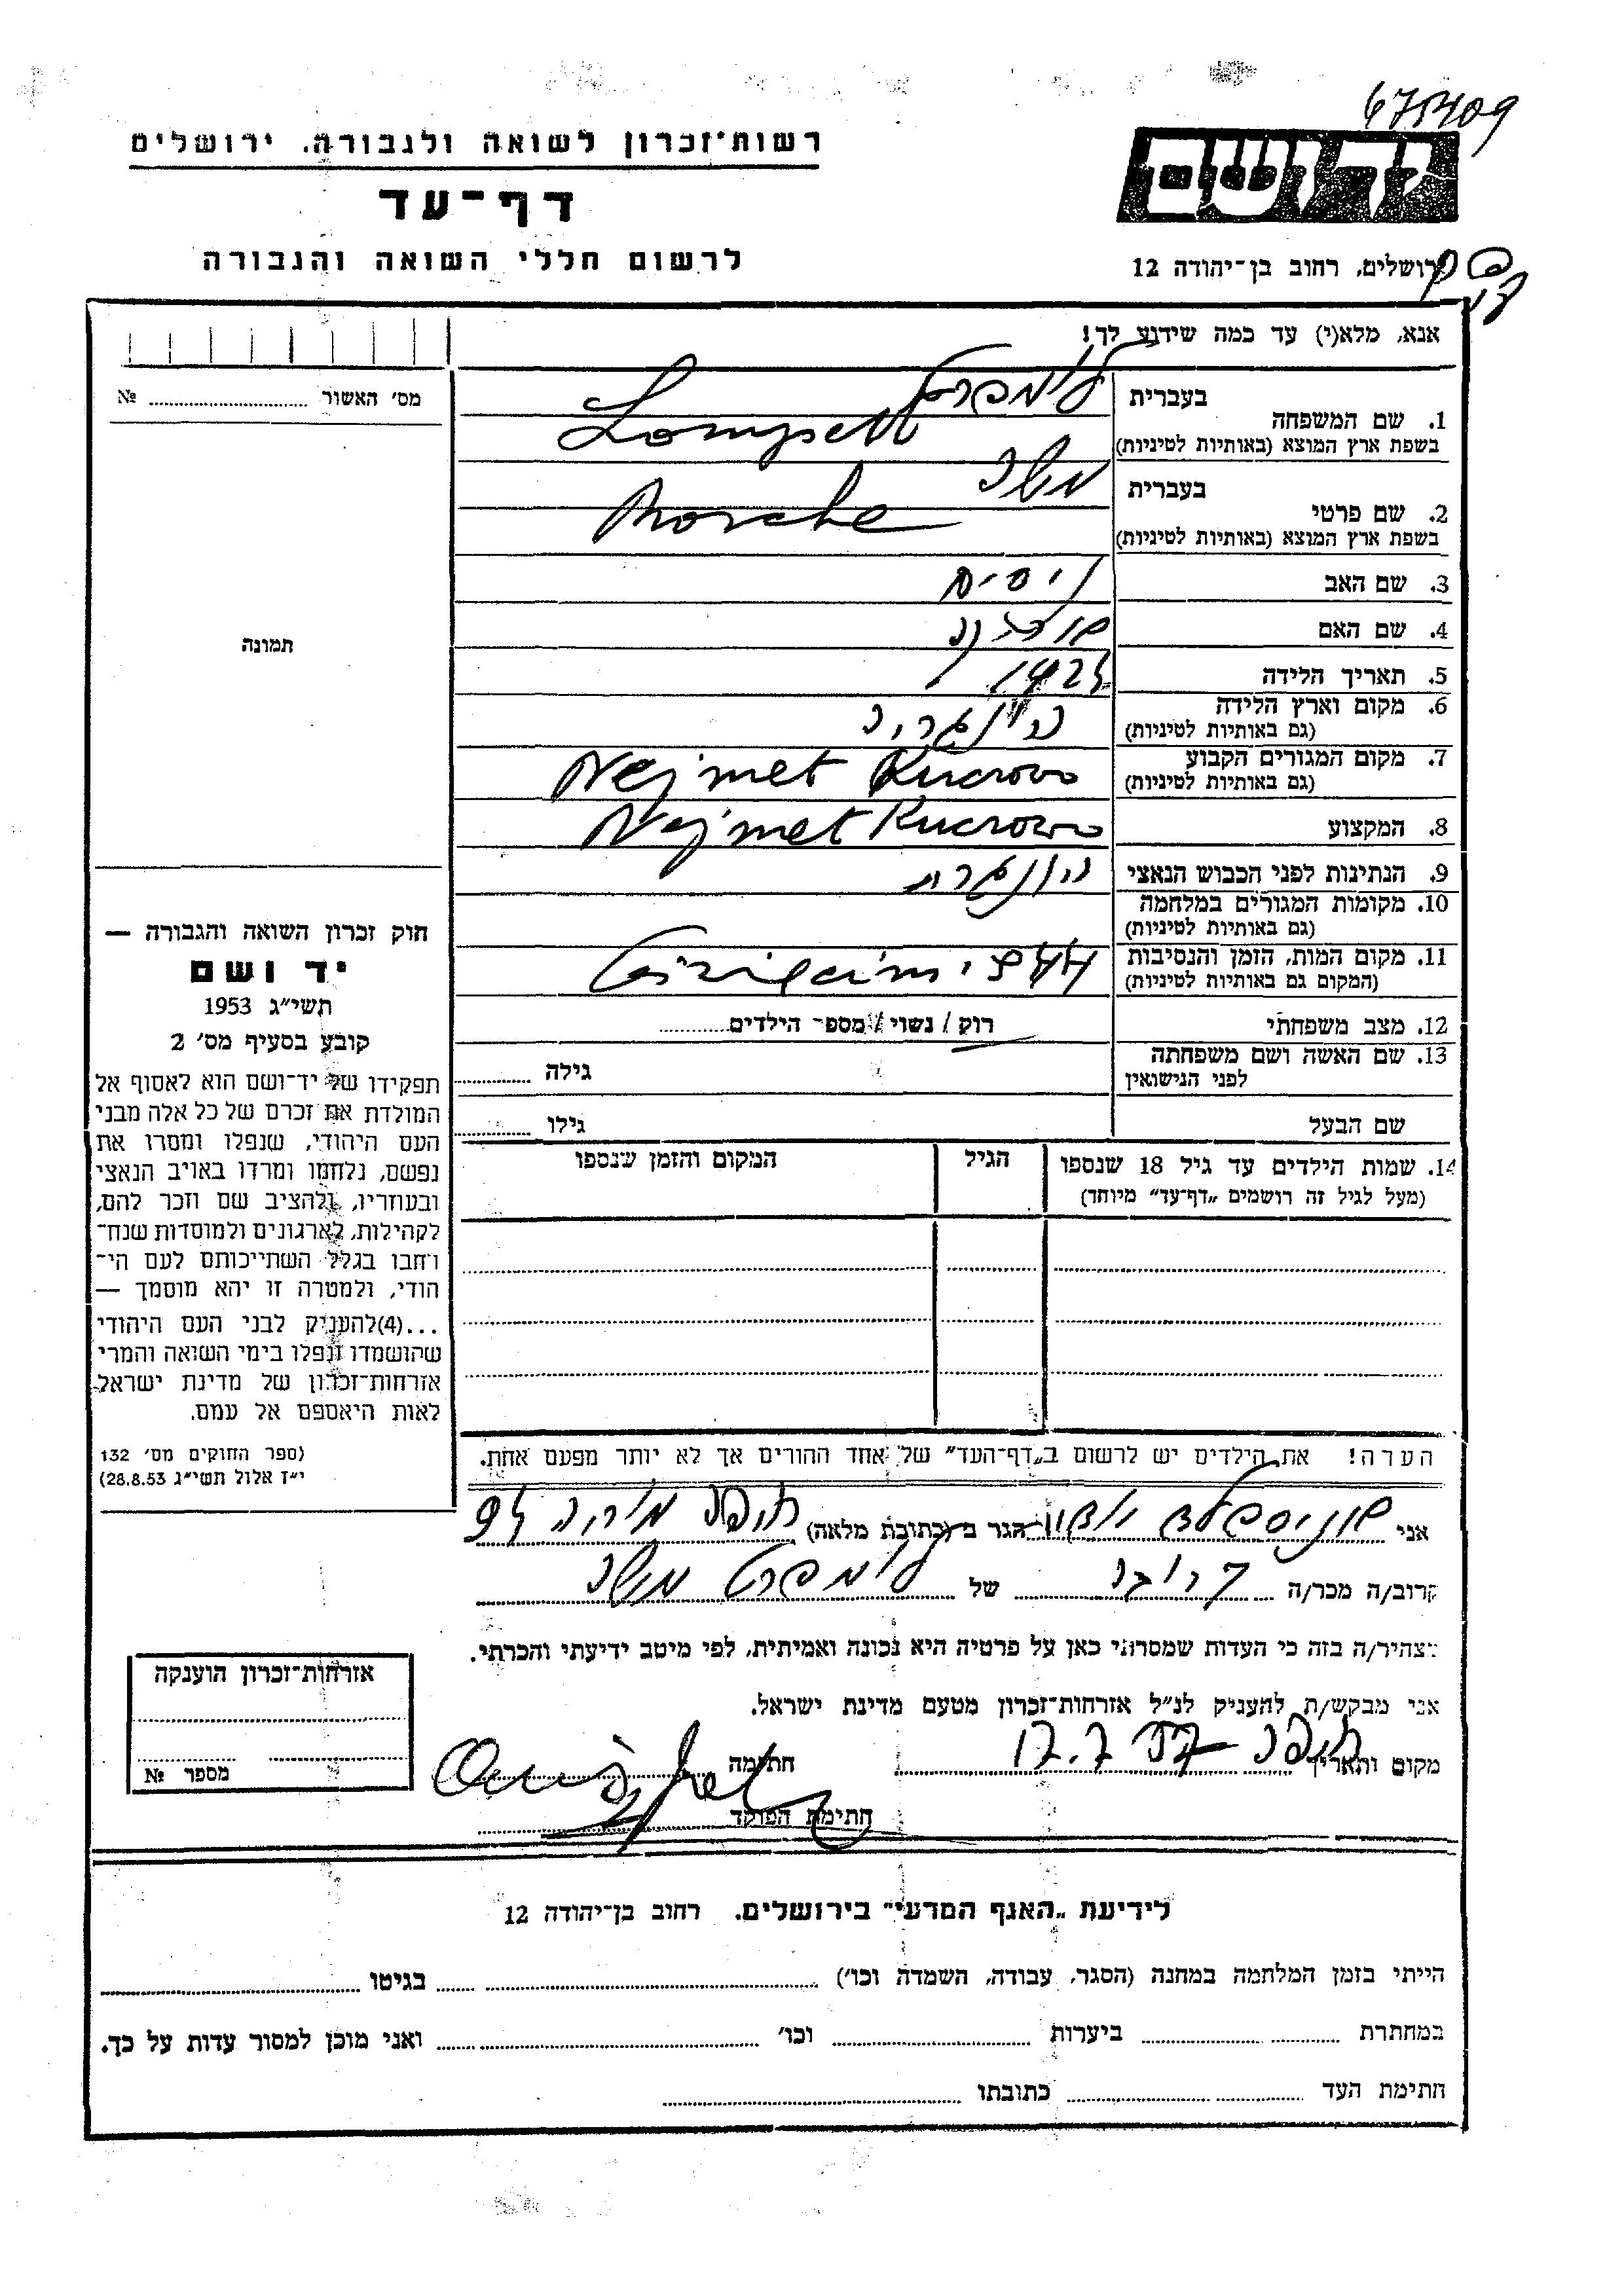 רשות־זכרון לשואה ולגבורה, ירושלים
דף־עד
לרשום חללי השואה והגבורה
ידושם
ירושלים, רחוב בן־יהודה 12
אנא, מלא(י) עד כמה שידוע לך!
מס׳ האשור № 
תמונה
1. שם המשפחה
בעברית לימפרט
בשפת ארץ המוצא (באותיות לטיניות)
2. שם פרטי
בעברית משה
בשפת ארץ המוצא (באותיות לטיניות)
3. שם האב ניסים
4. שם האם
5. תאריך הלידה
6. מקום וארץ הלידה הונגריה
(גם באותיות לטיניות)
7. מקום המגורים הקבוע Nejmet Kucrowo
(גם באותיות לטיניות)
8. המקצוע Nejmet Kucrowo
9. הנתינות לפני הכבוש הנאצי הונגרית
10. מקומות המגורים במלחמה
(גם באותיות לטיניות)
11. מקום המות, הזמן והנסיבות
(המקום גם באותיות לטיניות)
12. מצב משפחתי רוק / נשוי / מספר הילדים
13. שם האשה ושם משפחתה גילה
לפני הנישואין
שם הבעל גילו
14. שמות הילדים עד גיל 18 שנספו הגיל המקום והזמן שנספו
(מעל לגיל זה רושמים „דף־עד״ מיוחד)
חוק זכרון השואה והגבורה —
יד ושם
תשי״ג 1953
קובע בסעיף מס׳ 2
תפקידו של יד־ושם הוא לאסוף אל
המולדת את זכרם של כל אלה מבני
העם היהודי, שנפלו ומסרו את
נפשם, נלחמו ומרדו באויב הנאצי
ובעוזריו, ולהציב שם וזכר להם,
לקהילות, לארגונים ולמוסדות שנח־
רבו בגלל השתייכותם לעם הי־
הודי, ולמטרה זו יהא מוסמך —
...(4)להעניק לבני העם היהודי
שהושמדו ונפלו בימי השואה והמרי
אזרחות־זכרון של מדינת ישראל
לאות היאספם אל עמם.
(ספר החוקים מס׳ 132
י״ז אלול תשי״ג 28.8.53)
הערה! את הילדים יש לרשום ב„דף־העד״ של אחד ההורים אך לא יותר מפעם אחת.
אני הגר ב (כתובת מלאה) חיפה
קרוב/ה מכר/ה של לימפרט משה
מצהיר/ה בזה כי העדות שמסרתי כאן על פרטיה היא נכונה ואמיתית, לפי מיטב ידיעתי והכרתי.
אני מבקש/ת להעניק לנ״ל אזרחות־זכרון מטעם מדינת ישראל.
מקום ותאריך חיפה חתימה
חתימת הפוקד
אזרחות־זכרון הוענקה
מספר №
לידיעת „האגף המדעי״ בירושלים, רחוב בן־יהודה 12
הייתי בזמן המלחמה במחנה (הסגר, עבודה, השמדה וכו׳) בגיטו
במחתרת ביערות וכו׳ ואני מוכן למסור עדות על כך.
חתימת העד כתובתו